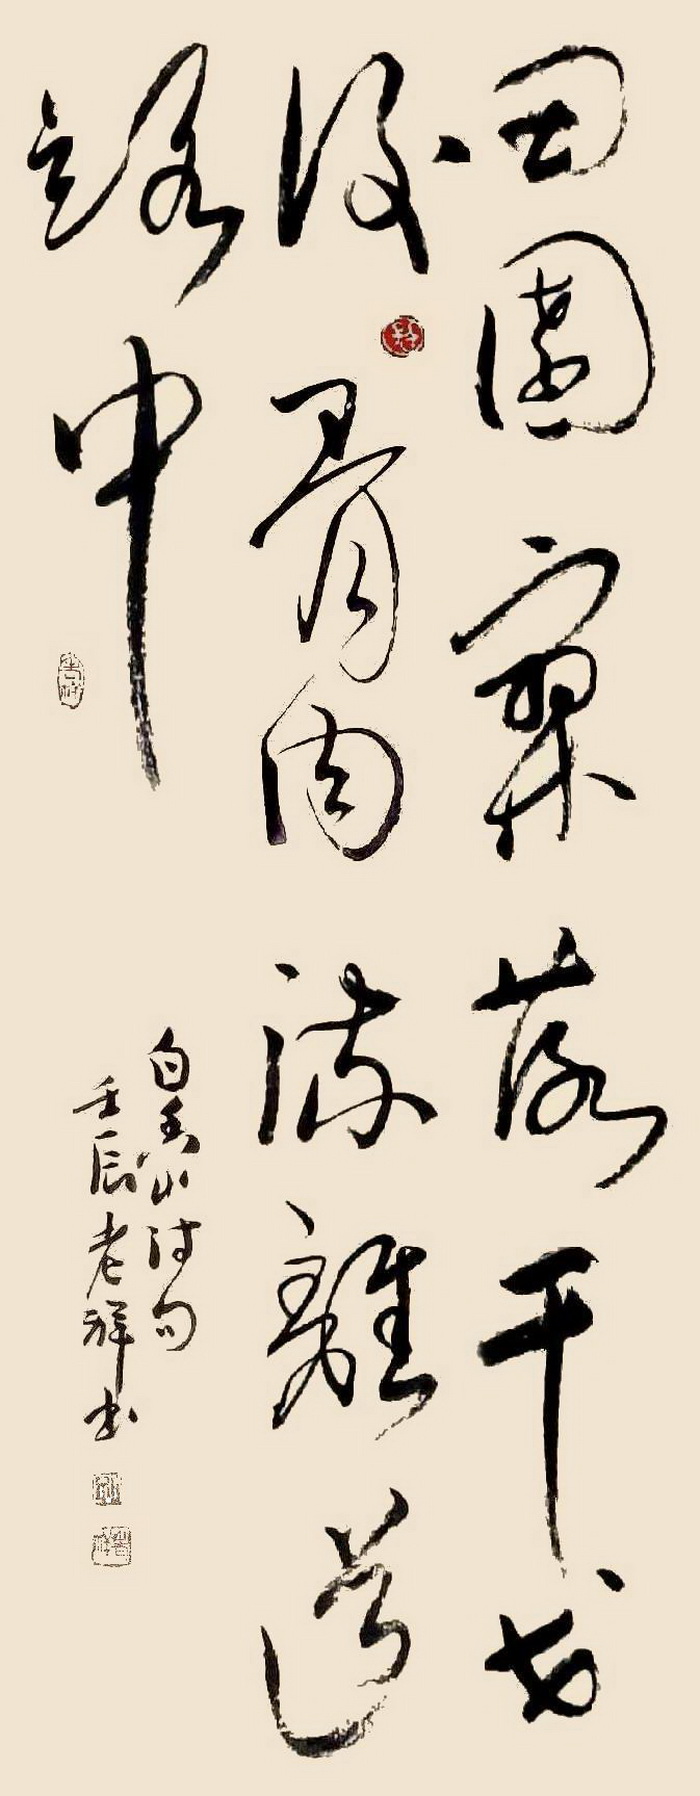 田園寥落干戈
後骨肉流離道
路中
白香山詩句
壬辰老祥書